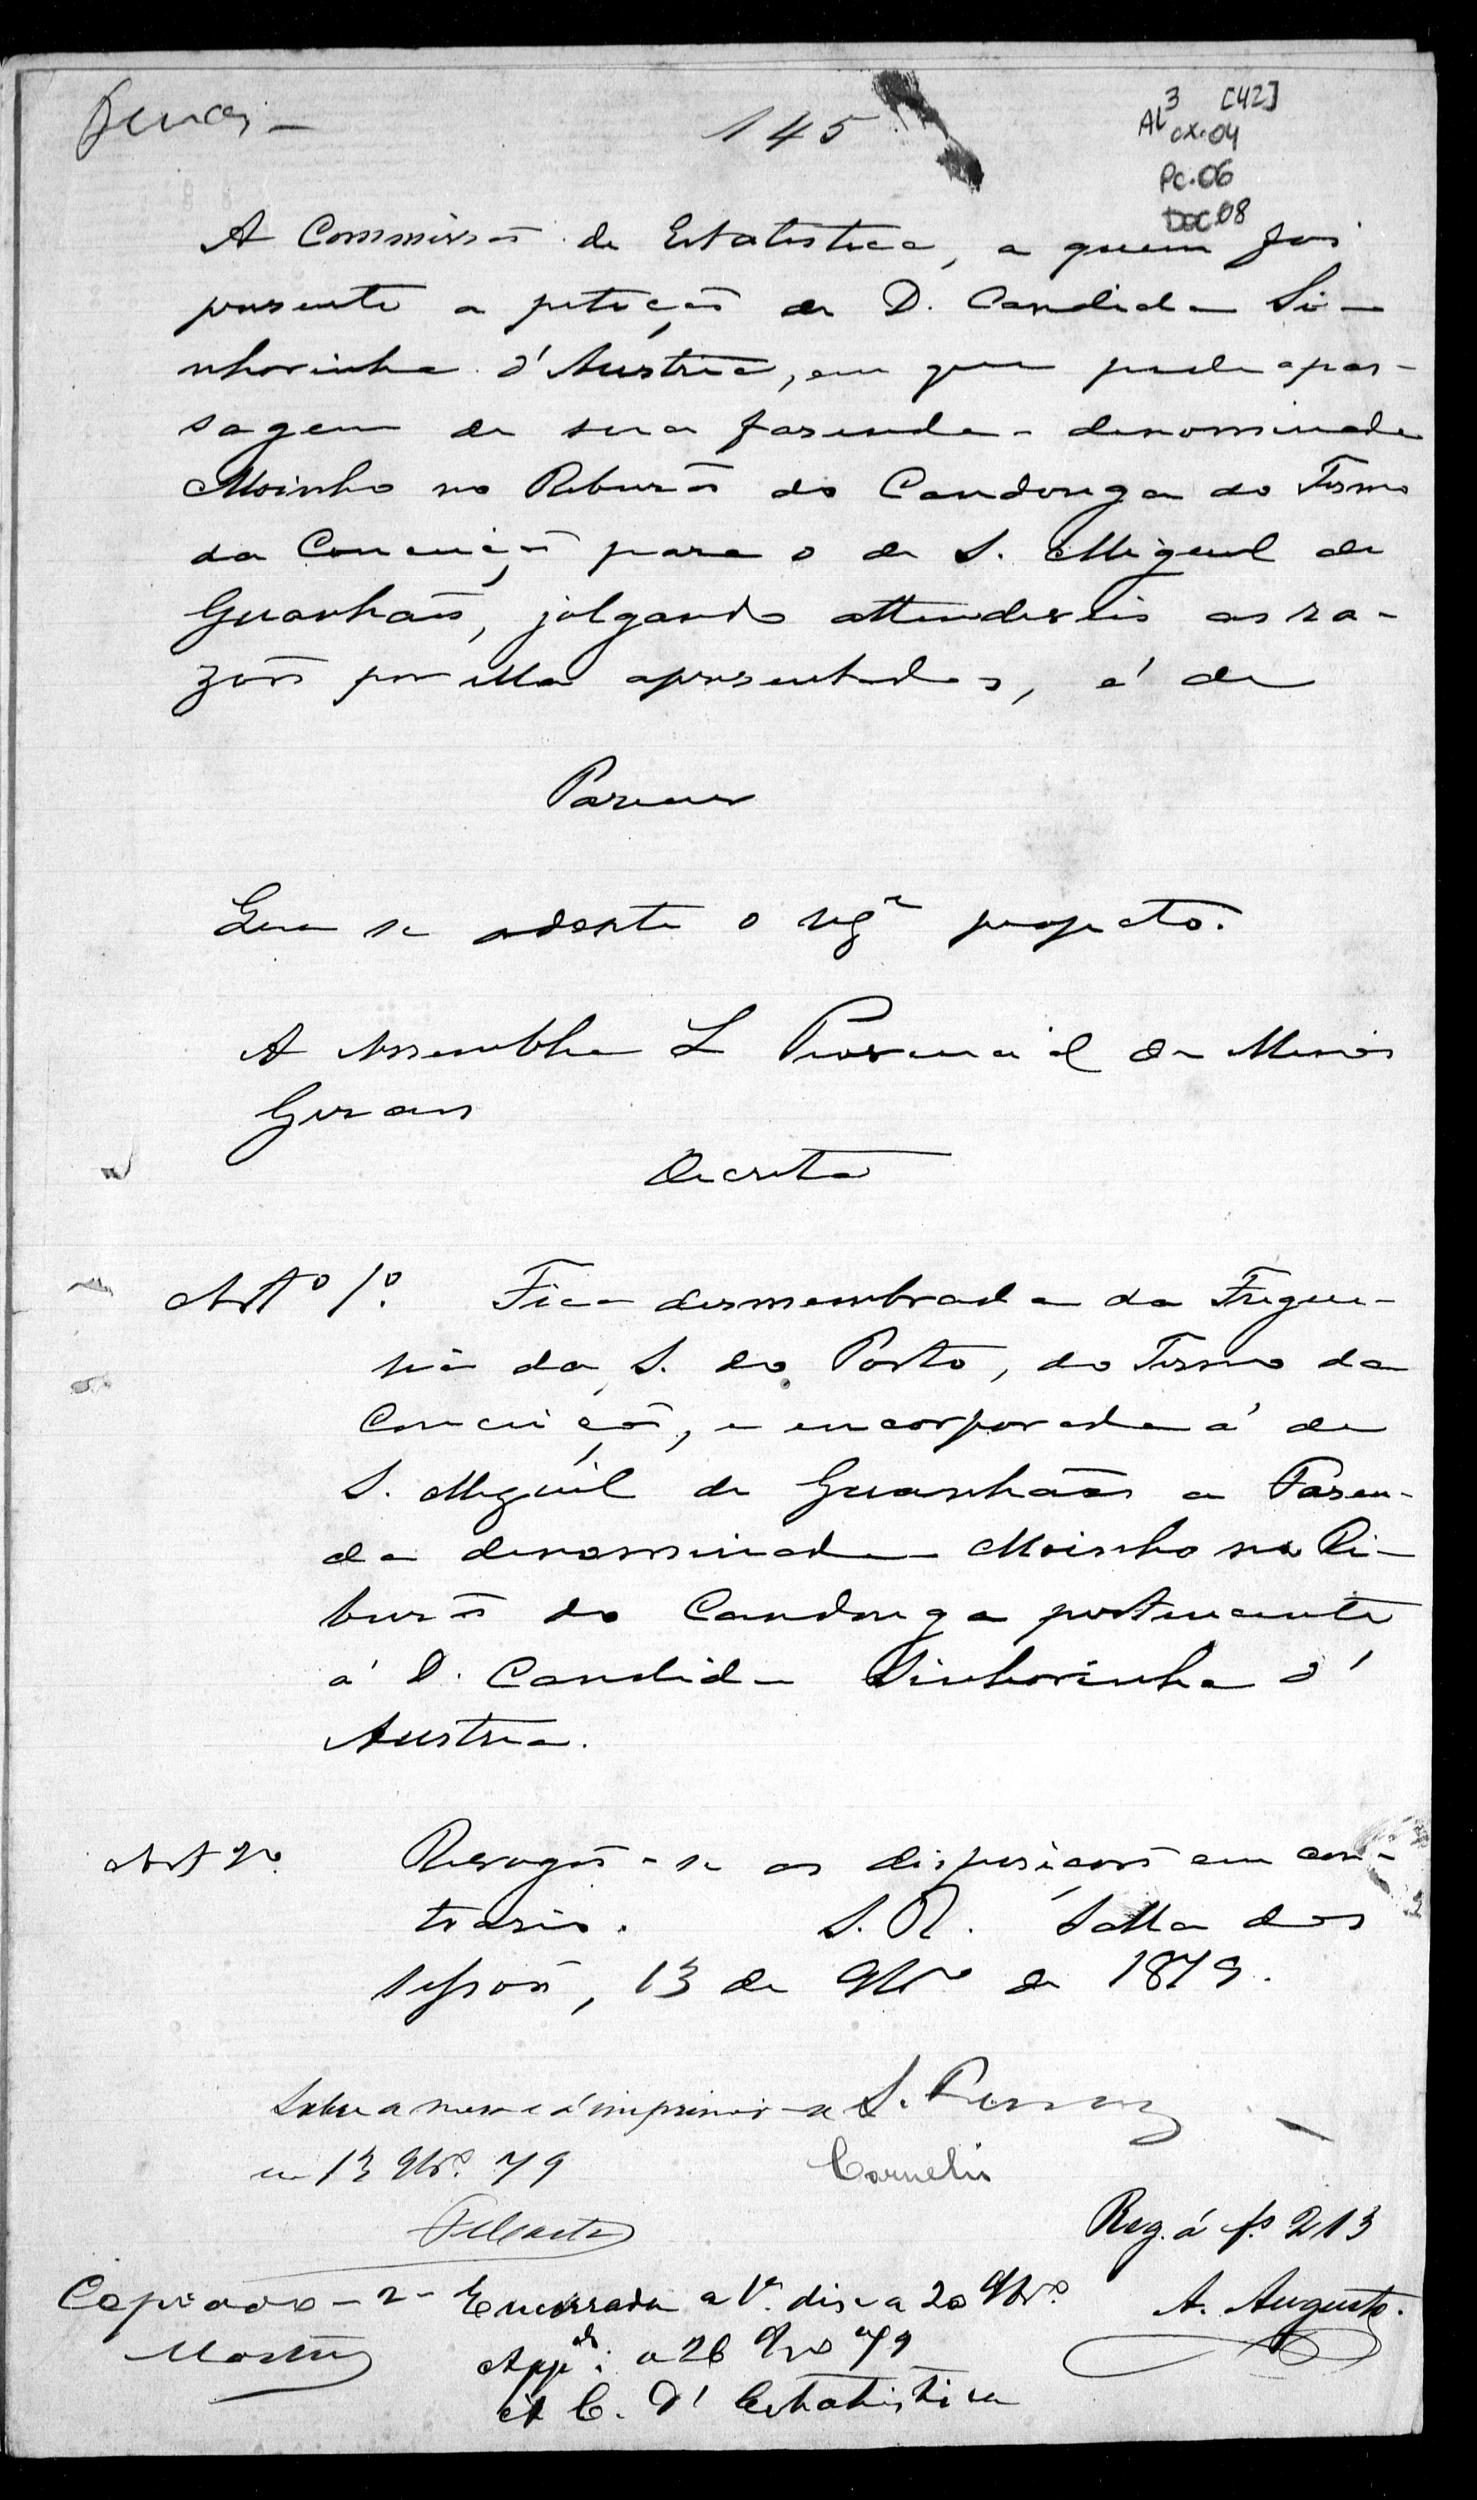 145
AL 3 [42]
cx.04
Pc.06
Doc 08
A Commissão de Estatistica, a quem foi
presente a petição de D. Candida Si-
nhorinha d'Austria, em que pede a pas-
sagem de sua fazenda denominada
Moinho no Ribeirão do Candonga do Termo
da Conceição para o de S. Miguel de
Guanhães, julgando attendiveis as ra-
zões por ella apresentadas, é de
Parecer
Que se adopte o segte projecto.
A Assemblea L Provincial de Minas
Geraes
Decreta
Artº 1º. Fica desmembrada da Fregue-
sia da S. do Porto, do Termo da
Conceição, e encorporada á de
S. Miguel de Guanhães a Fasen-
da denominada Moinho no Ri-
beirão do Candonga pertencente
á D. Candida Sinhorinha d'
Austria.
Art 2º. Revogão-se as disposições em con-
trario. S. R. Salla das
sessões, 13 de 9brº de 1879.
Sobre a mesa e á imprimir-se S.
em 13 9brº. 79 Cornelio
Reg. á fs 213
Copiado - 2 - Encerrada a 1ª. disc a 20 9brº A. Augusto.
Martins Appda: a 26 9brº 79
A C. d'Estatistica